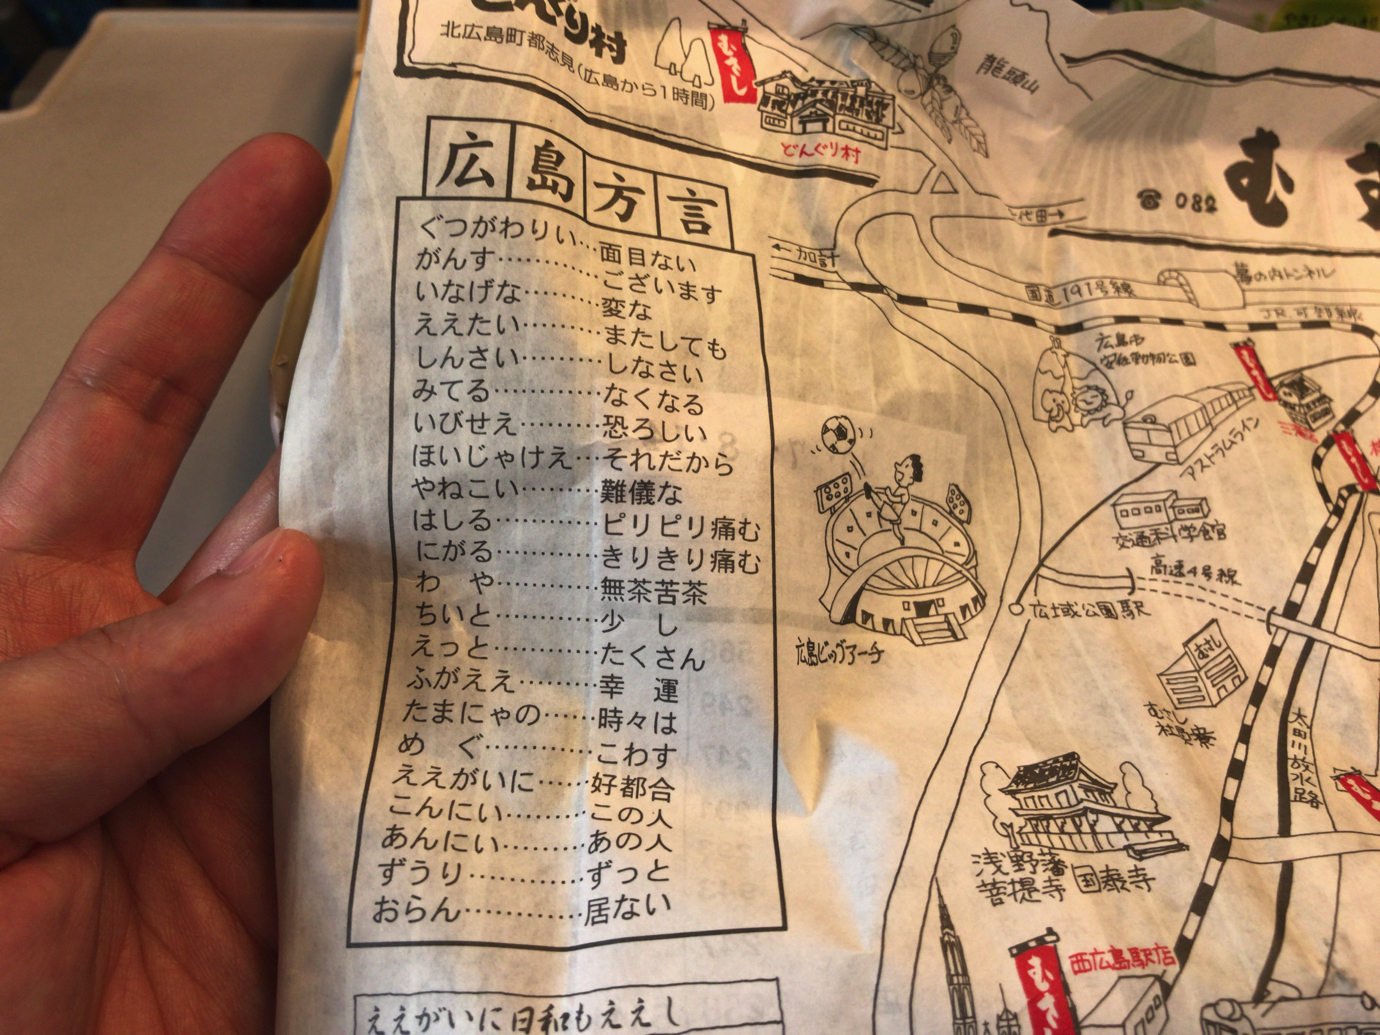 どんぐり村
北広島町都志見(広島から1時間)
むさし
どんぐり村
龍頭山
む
☎082
広島方言
ぐつがわりい…面目ない
がんす…………ございます
いなげな………変な
ええたい………またしても
しんさい………しなさい
みてる…………なくなる
いびせえ………恐ろしい
ほいじゃけえ…それだから
やねこい………難儀な
はしる…………ピリピリ痛む
にがる…………きりきり痛む
わ　や…………無茶苦茶
ちいと…………少　し
えっと…………たくさん
ふがええ………幸　運
たまにゃの……時々は
め　ぐ…………こわす
ええがいに……好都合
こんにい………この人
あんにい………あの人
ずうり…………ずっと
おらん…………居ない
ええがいに日和もええし
←加計
代田→
国道191号線
トンネル
JR可部線
広島市
安佐動物公園
アストラムライン
交通科学館
高速4号線
広域公園駅
広島ビッグアーチ
むさし
むさし
むさし
太田川放水路
浅野藩
菩提寺
国泰寺
西広島駅店
むさし